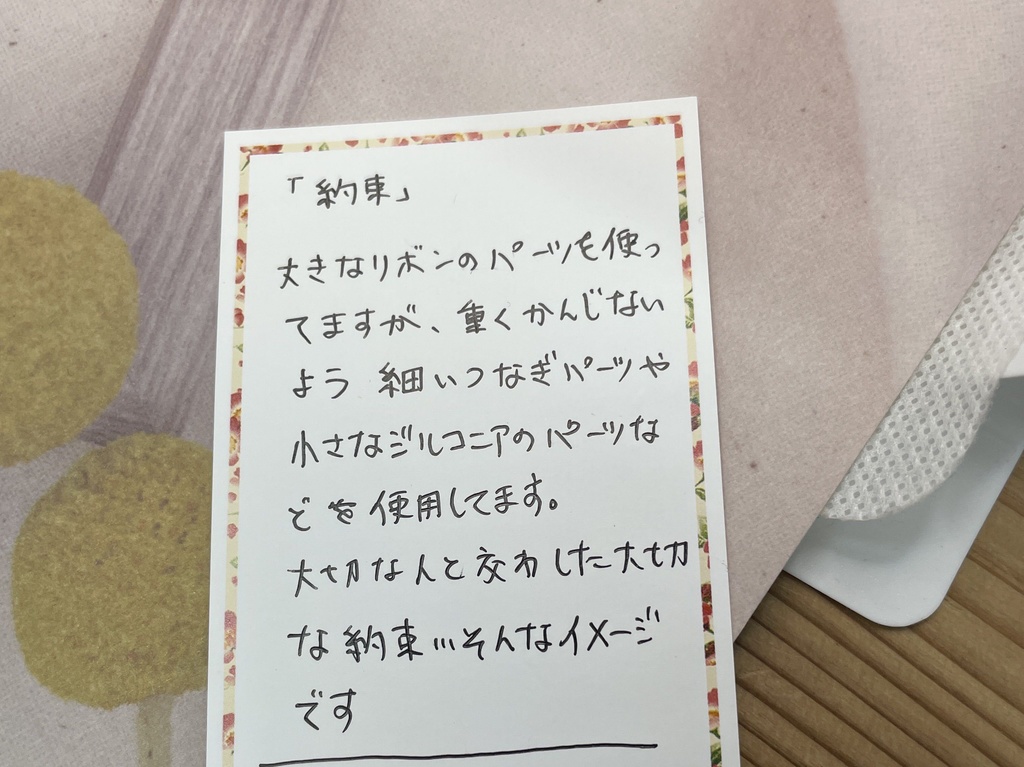 「約束」
大きなリボンのパーツを使っ
てますが、重くかんじない
よう 細いつなぎパーツや
小さなジルコニアのパーツな
どを使用してます。
大切な人と交わした大切
な約束…そんなイメージ
です